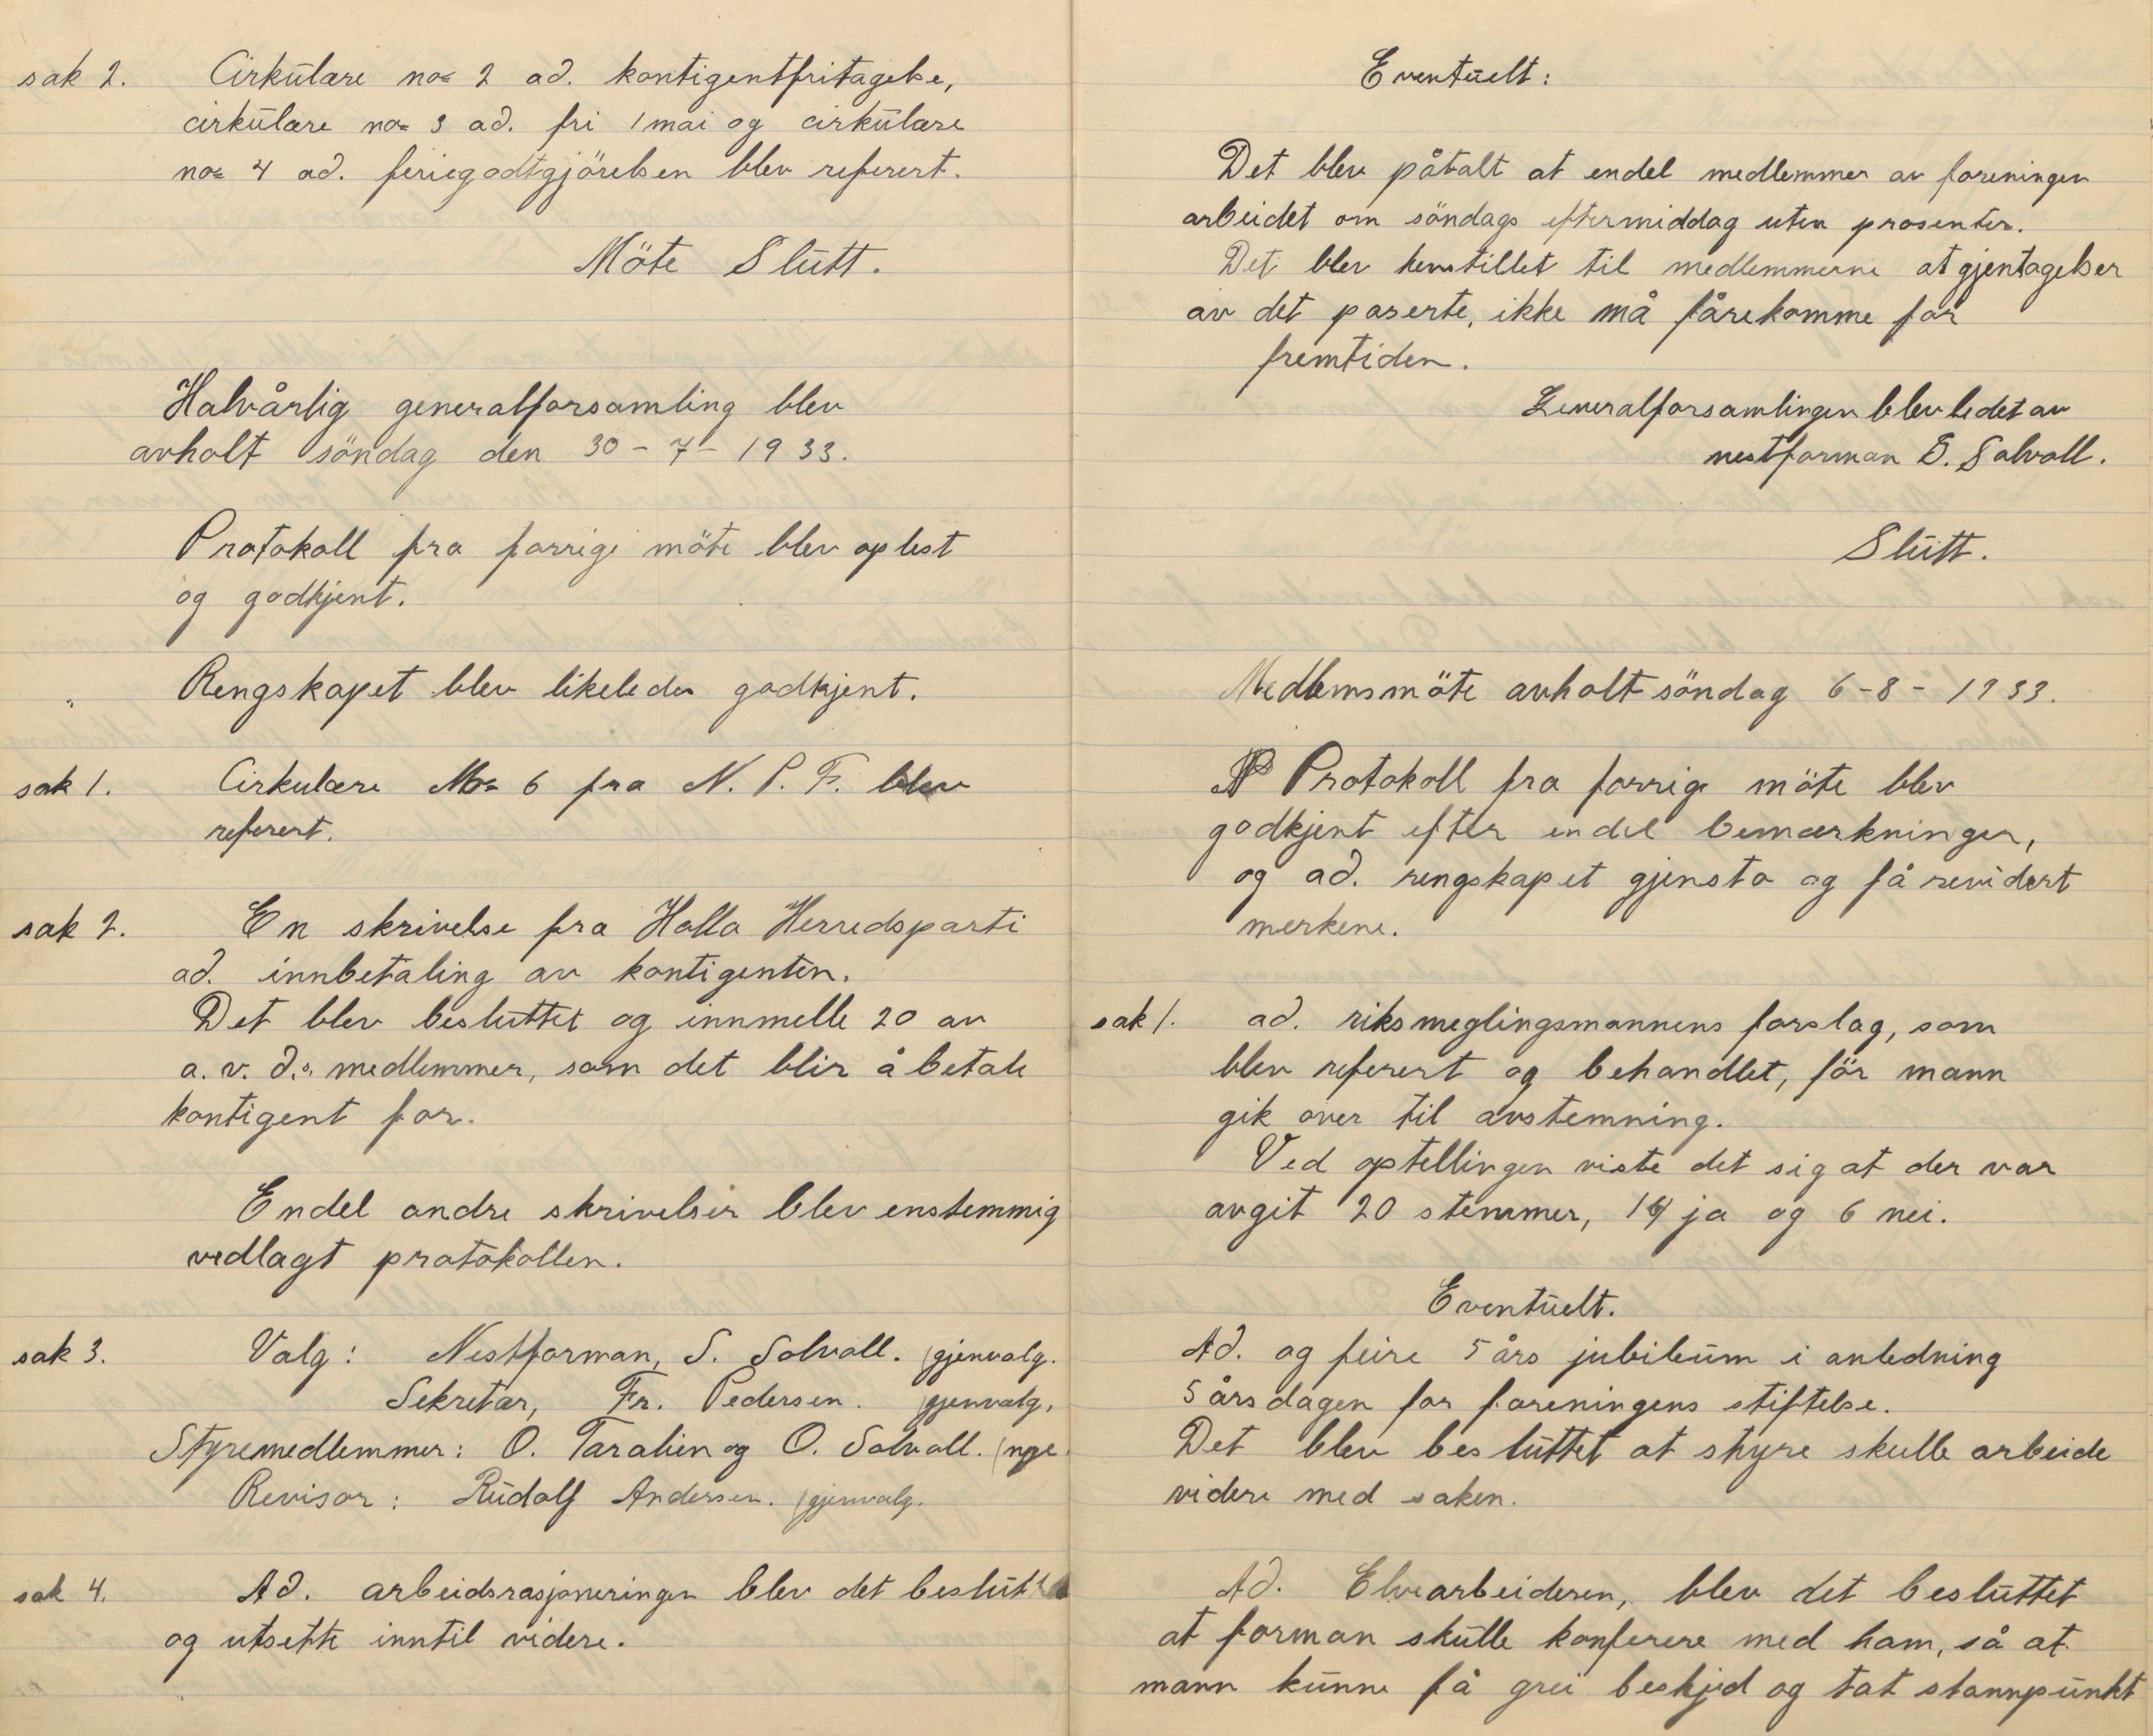 sak 2. Cirkulære no= 2 ad. kontigentfritagelse,
cirkulære no= 3 ad. fri 1 mai og cirkulære
no= 4 ad. feriegodtgjörelsen blev referert.
Möte Slutt.
Halvårlig generalforsamling blev
avholt söndag den 30 - 7 - 1933.
Protokoll fra forrige möte blev oplest
og godkjent.
Rengskapet blev likeledes godkjent.
sak 1. Cirkulære No= 6 fra N. P. F. blev
referert.
sak 2. En skrivelse fra Holla Herredsparti
ad. innbetaling av kontigenten.
Det blev besluttet og innmelle 20 av
a. v. d.s. medlemmer, som det blir å betale
kontigent for.
Endel andre skrivelser blev enstemmig
vedlagt protokollen.
sak 3. Valg: Nestforman, S. Solvoll. (gjenvalg.
Sekretær, Fr. Pedersen. (gjenvalg.
Styremedlemmer: O. Taralien og O. Solvoll. (nye.
Revisor: Rudolf Andersen. (gjenvalg.
sak 4. Ad. arbeidsrasjoneringen blev det beslutt
og utsette inntil videre.
Eventuelt:
Det blev påtalt at endel medlemmer av foreningen
arbeidet om söndags eftermiddag uten prosenter.
Det blev henstillet til medlemmerne at gjentagelser
av det paserte, ikke må fårekomme for
fremtiden.
Generalforsamlingen blev ledet av
nestforman S. Solvoll.
Slutt.
Medlemsmöte avholt söndag 6-8-1933.
Protokoll fra forrige möte blev
godkjent efter endel bemærkninger,
og ad. rengskapet gjensto og få revidert
merkene.
sak 1. ad. riksmeglingsmannens forslag, som
blev referert og behandlet, för mann
gik over til avstemning.
Ved optellingen viste det sig at der var
avgit 20 stemmer, 14 ja og 6 nei.
Eventuelt.
Ad. og feire 5 års jubileum i anledning
5 årsdagen for foreningens stiftelse.
Det blev besluttet at styre skulle arbeide
videre med saken.
Ad. Elvearbeideren, blev det besluttet
at forman skulle konferere med ham, så at
mann kunne få grei beskjed og tat stannpunkt